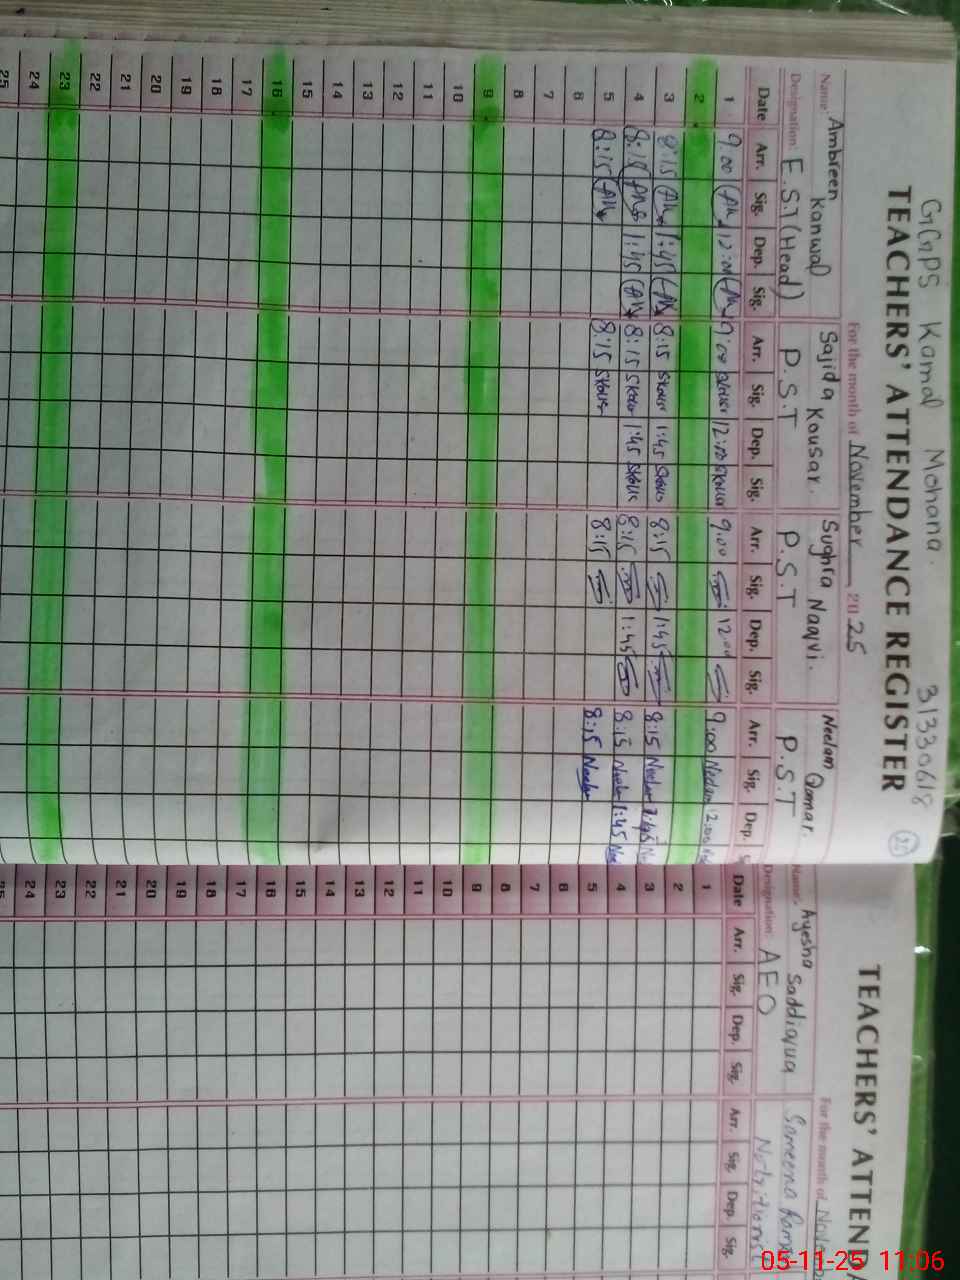 GGPS Kamal Mohana. 31330618
32
TEACHERS' ATTENDANCE REGISTER
For the month of November 2025
Name: Ambreen Kanwal Sajida Kousar. Sughra Naqvi. Neelam Qamar.
Designation: E.S.T (Head) P.S.T P.S.T P.S.T
Date Arr. Sig. Dep. Sig. Arr. Sig. Dep. Sig. Arr. Sig. Dep. Sig. Arr. Sig. Dep.
1 9:00 12:00 9:00 12:00 9:00 12:00 9:00 Neelam 12:00
2
3 8:15 1:45 8:15 1:45 8:15 1:45 8:15 Neelam 1:45
4 8:15 1:45 8:15 1:45 8:15 1:45 8:15 Neelam 1:45
5 8:15 8:15 8:15 8:15 Neelam
6
7
8
9
10
11
12
13
14
15
16
17
18
19
20
21
22
23
24
25
TEACHERS' ATTEND
For the month of
Name: Ayesha Saddiqua Sameena
Designation: AEO Nutritionist
Date Arr. Sig. Dep. Sig. Arr. Sig. Dep. Sig.
1
2
3
4
5
6
7
8
9
10
11
12
13
14
15
16
17
18
19
20
21
22
23
24
05-11-25 11:06